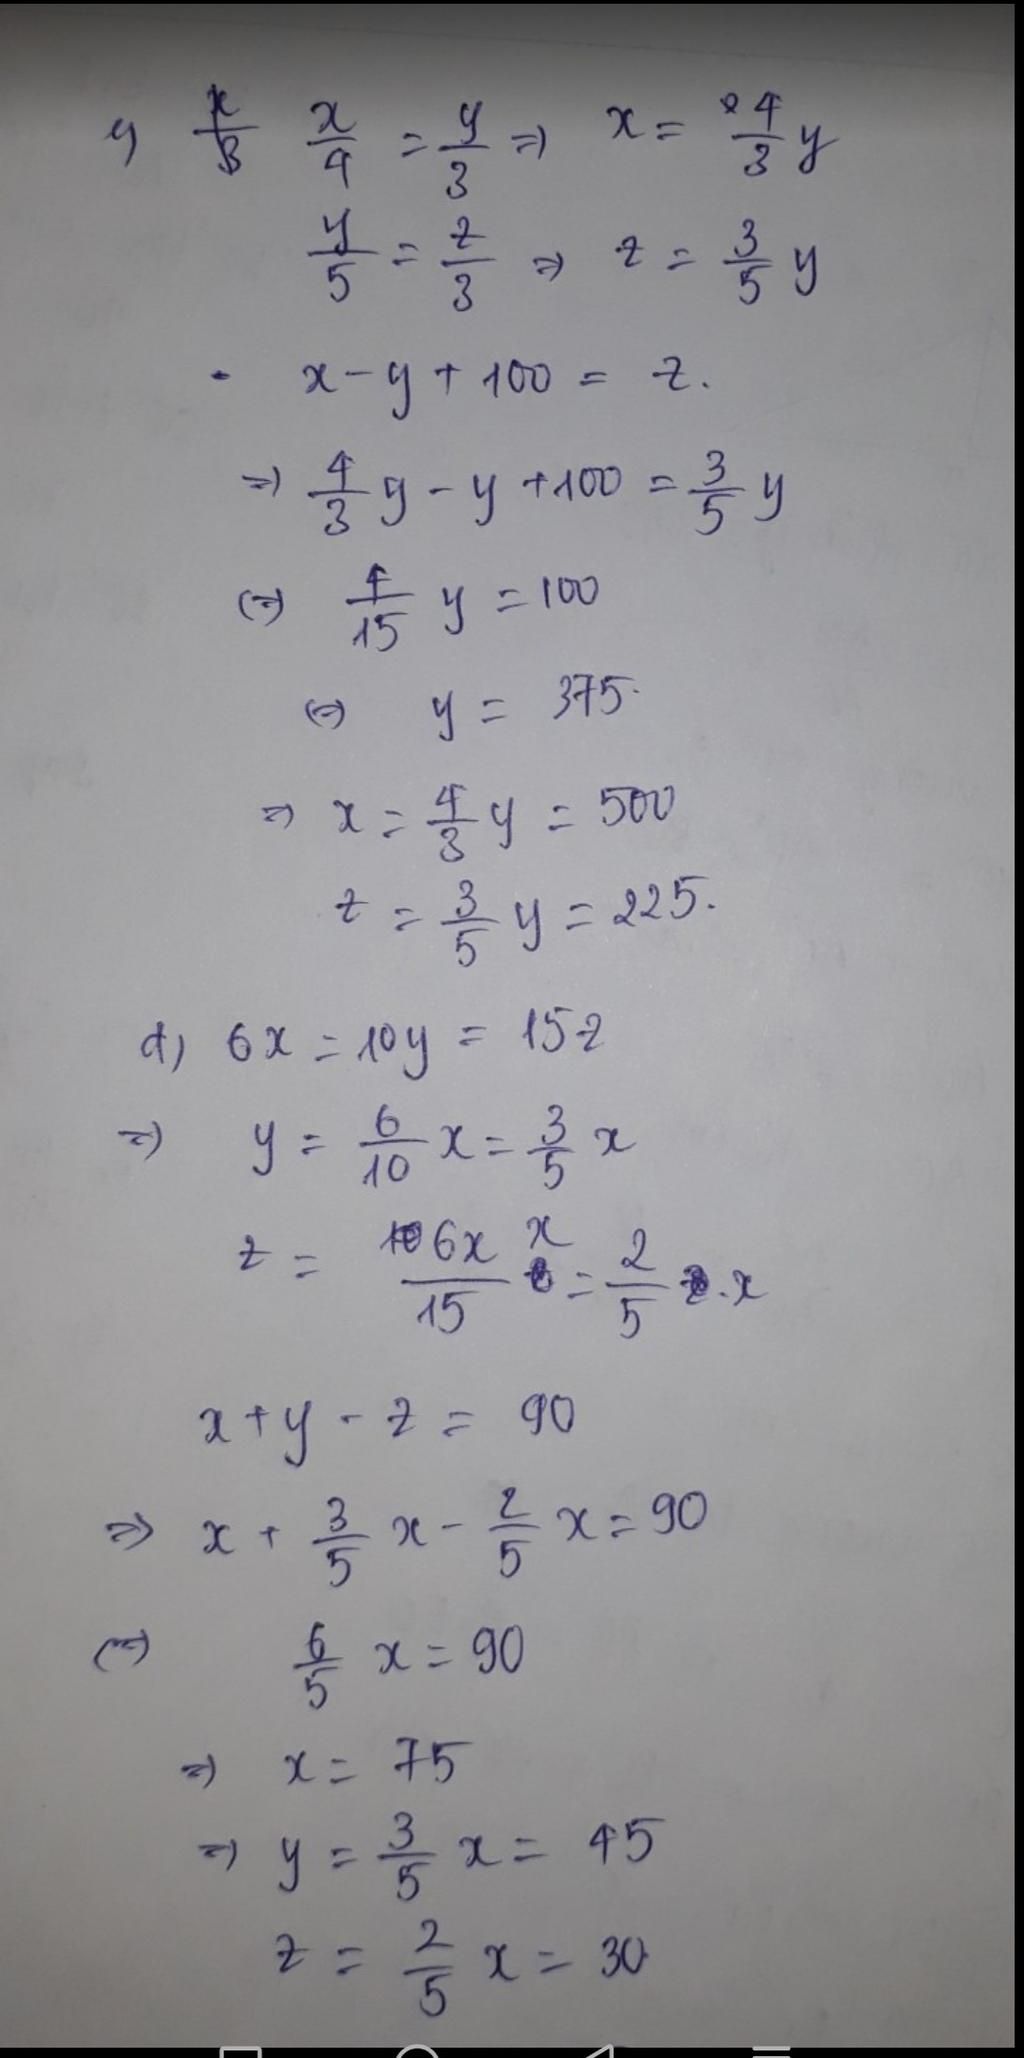 c) x/3 x/4 = y/3 => x = 4/3 y
y/5 = z/3 => z = 3/5 y
- x - y + 100 = z.
=> 4/3 y - y + 100 = 3/5 y
<=> 4/15 y = 100
<=> y = 375.
=> x = 4/3 y = 500
z = 3/5 y = 225.
d) 6x = 10y = 15z
=> y = 6/10 x = 3/5 x
z = 6x/15 x = 2/5 . x
x + y - z = 90
=> x + 3/5 x - 2/5 x = 90
<=> 6/5 x = 90
=> x = 75
=> y = 3/5 x = 45
z = 2/5 x = 30